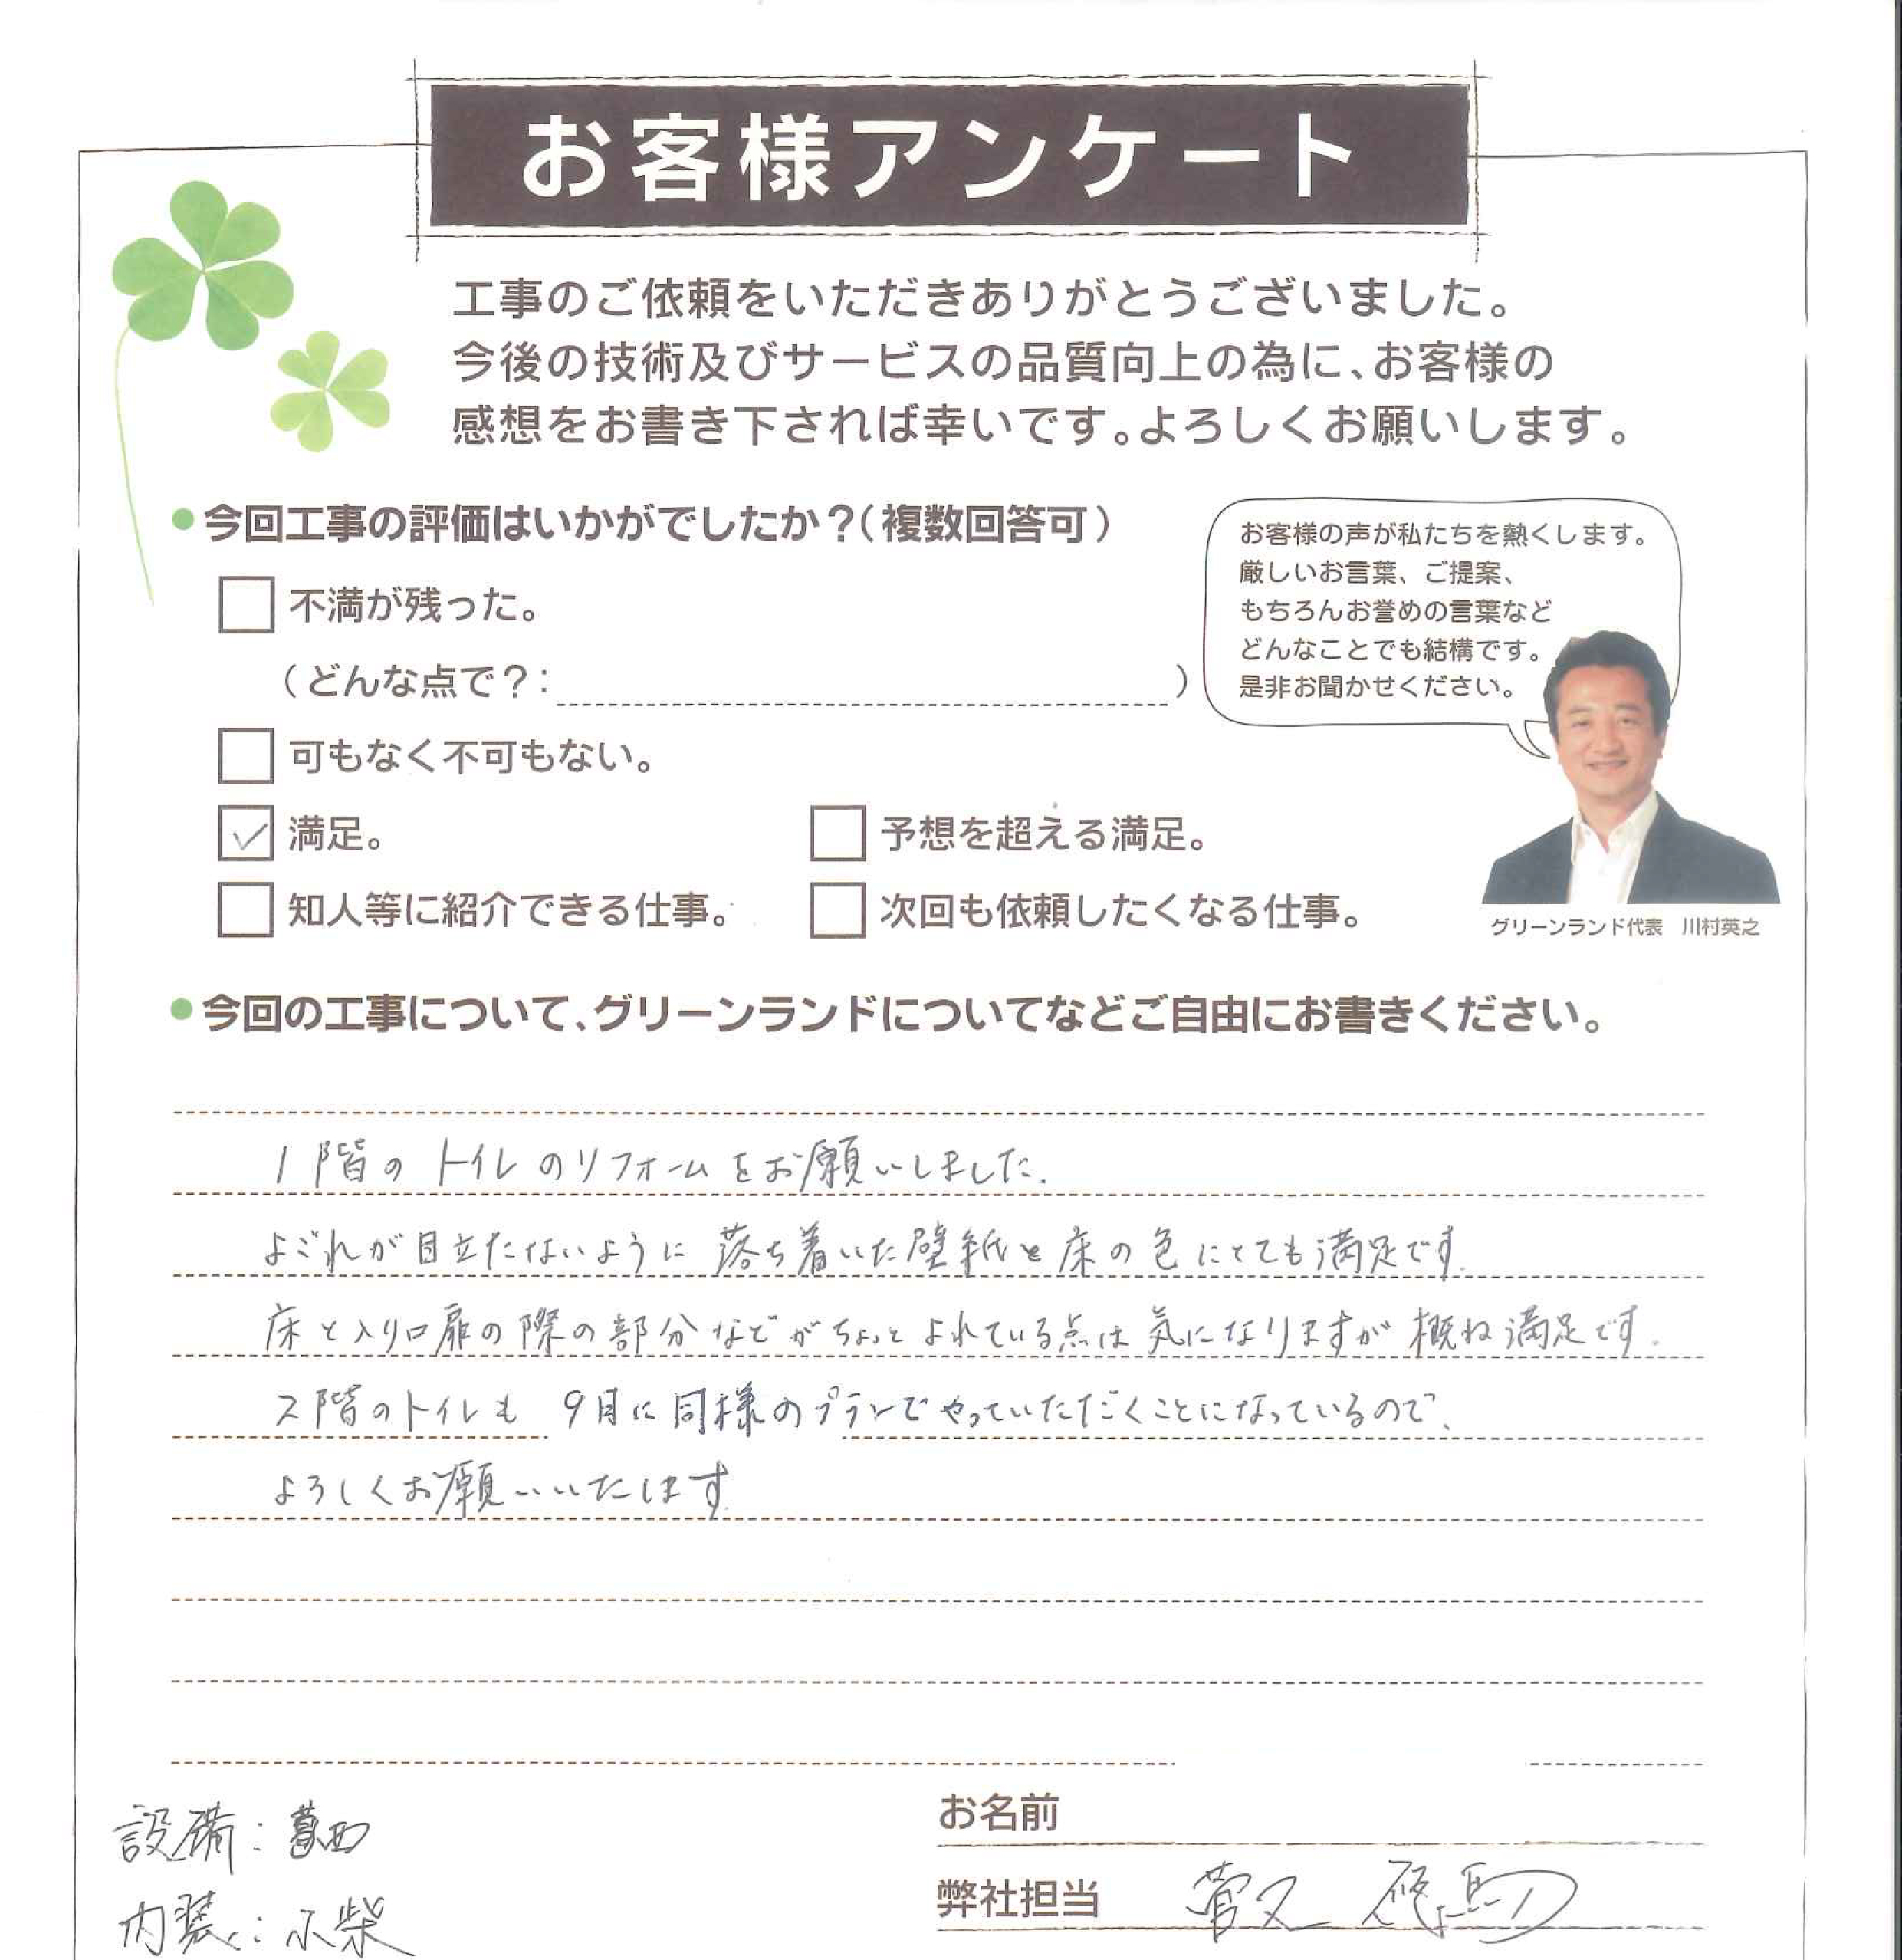 お客様アンケート
工事のご依頼をいただきありがとうございました。
今後の技術及びサービスの品質向上の為に、お客様の
感想をお書き下されば幸いです。よろしくお願いします。
●今回工事の評価はいかがでしたか？（複数回答可）
不満が残った。
（どんな点で？：　）
可もなく不可もない。
✓ 満足。
予想を超える満足。
知人等に紹介できる仕事。
次回も依頼したくなる仕事。
お客様の声が私たちを熱くします。
厳しいお言葉、ご提案、
もちろんお誉めの言葉など
どんなことでも結構です。
是非お聞かせください。
グリーンランド代表　川村英之
●今回の工事について、グリーンランドについてなどご自由にお書きください。
1階のトイレのリフォームをお願いしました.
よごれが目立たないように落ち着いた壁紙と床の色にとても満足です.
床と入り口扉の際の部分などがちょっとよれている点は気になりますが概ね満足です.
2階のトイレも 9月に同様のプランでやっていただくことになっているので、
よろしくお願いいたします.
設備：葛西
内装：小柴
お名前
弊社担当